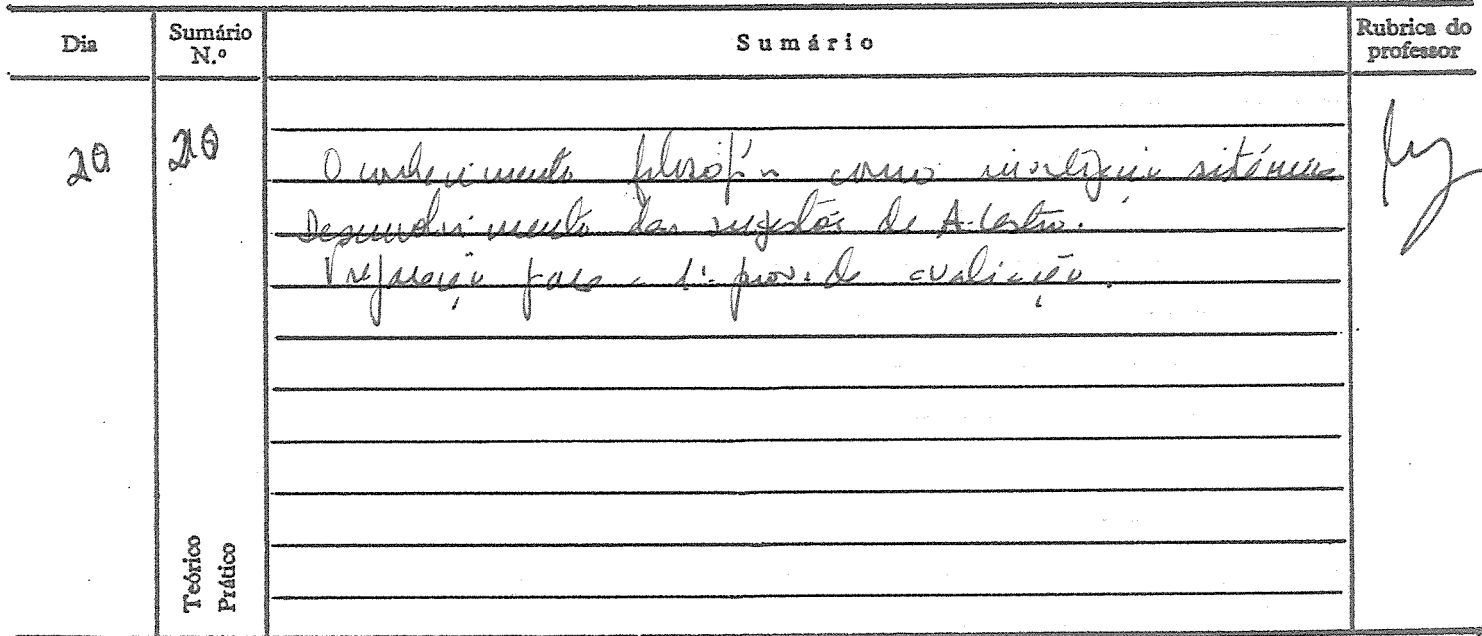 Dia
Sumário N.º
Sumário
Rubrica do professor
20
20
O conhecimento filosófico como
Desenvolvimento das sugestões de A. Castro.
Preparação para a 1ª prova de avaliação.
Teórico
Prático